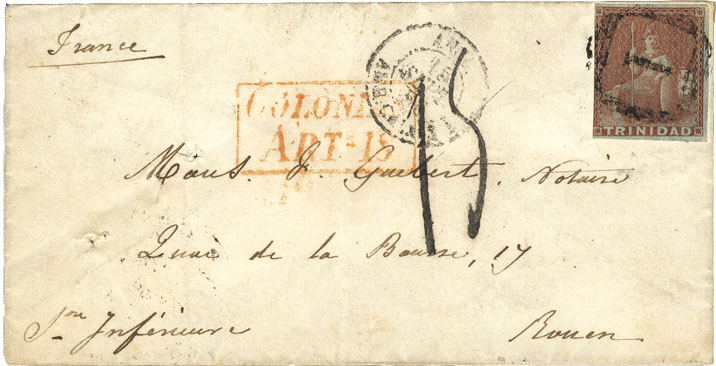 France
COLONI
ART-18
TRINIDAD
15
Mons. J. Guebert, Notaire
Quai de la Bourse, 17
Sne Inférieure
Rouen